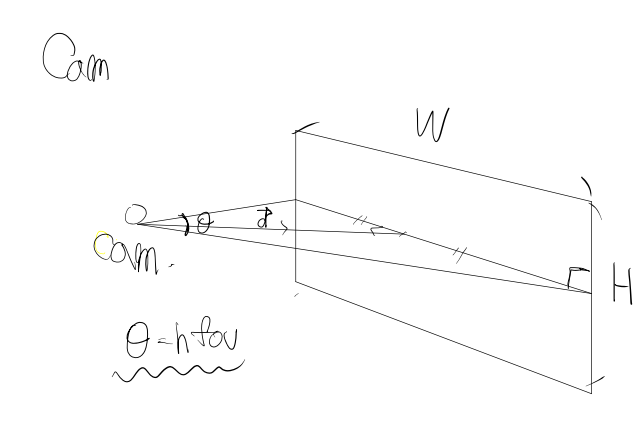 Cam
W
O
θ
d
Cam.
H
θ=hfov